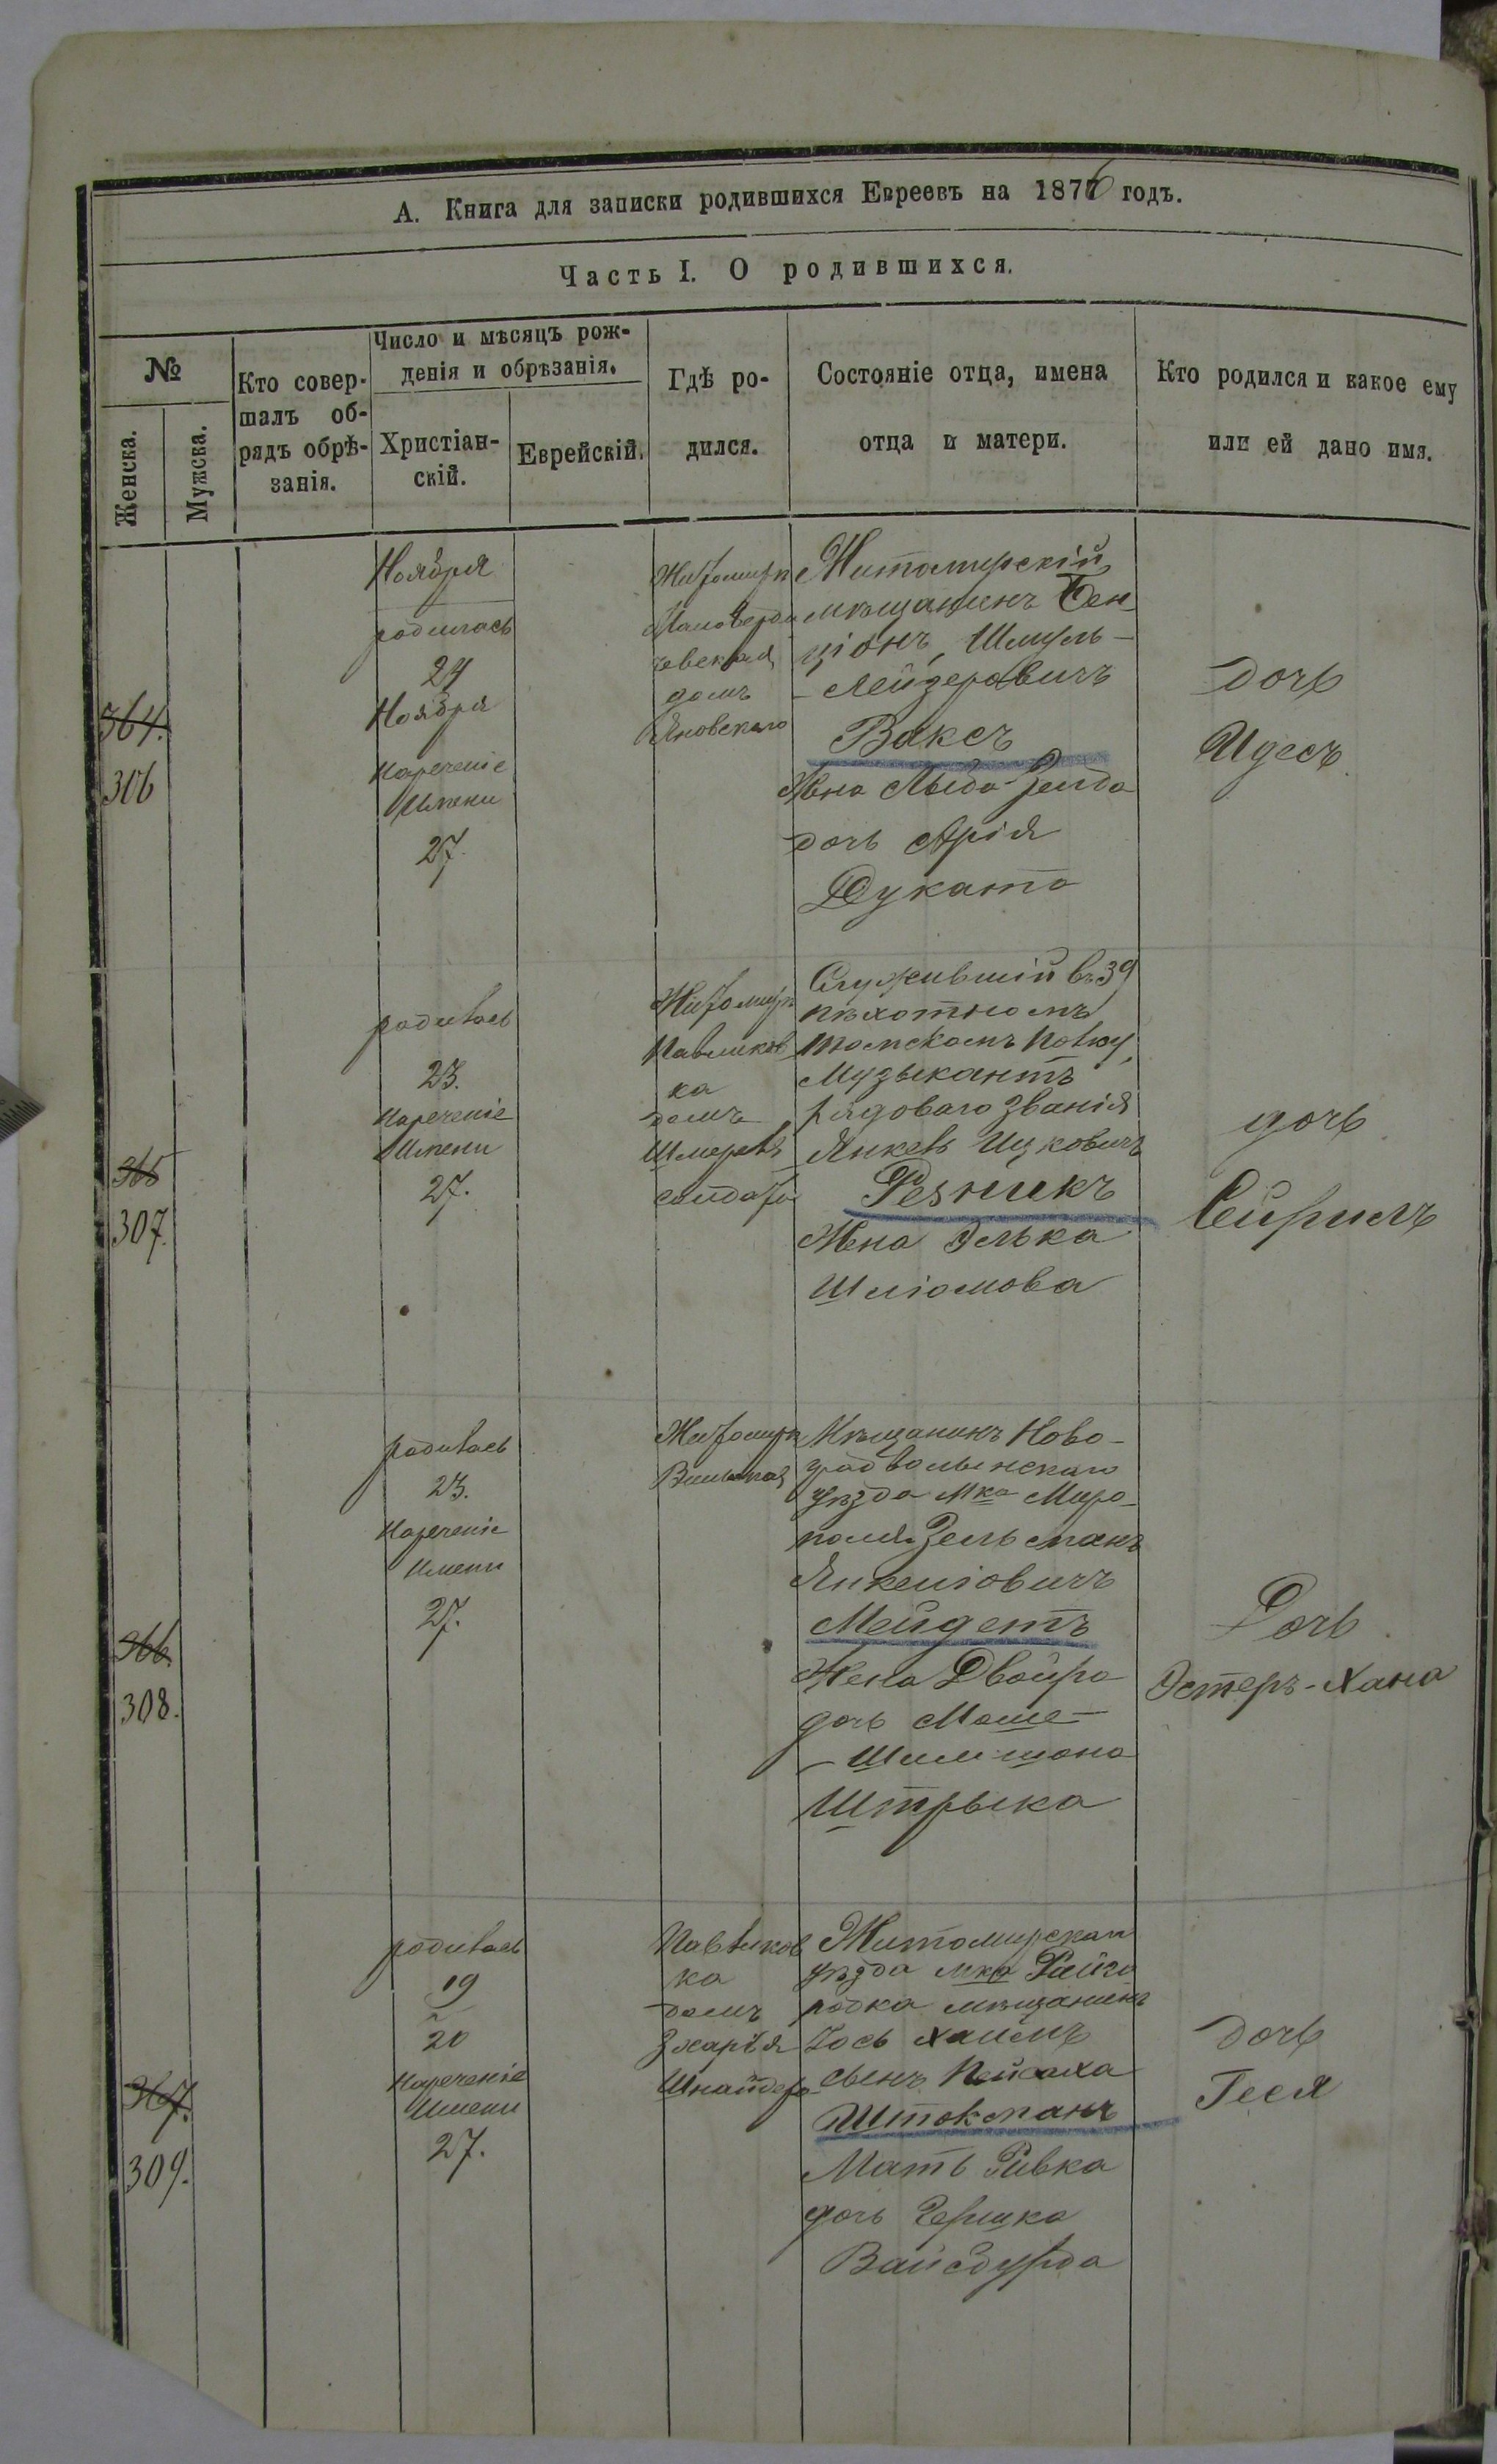 А. Книга для записки родившихся Евреевъ на 1876 годъ.
Часть I. О родившихся.
№
Женска.
Мужска.
Кто совер-
шалъ об-
рядъ обрѣ-
занія.
Число и мѣсяцъ рож-
денія и обрѣзанія.
Христіан-
скій.
Еврейскій.
Гдѣ ро-
дился.
Состояніе отца, имена
отца и матери.
Кто родился и какое ему
или ей дано имя.
364.
306
Ноября
родилась
24
Ноября
Нареченіе
Имени
27.
Житомиръ
домъ
Яновскаго
Житомирскій
мѣщанинъ Бен
ціонъ, Шмуль-
-Лейзеровичъ
Ваксъ
Жена Лыба-Зельда
дочь Арія
Дуката
дочь
Идесъ
365
307.
родилась
23.
Нареченіе
Имени
27.
Житомиръ
Павликов
ка
домъ
солдата
Служившій въ 39
пѣхотномъ
Томскомъ полку
Музыкантъ
рядоваго званія
Янкель Ицковичъ
Резникъ
Жена Элька
Шліомова
дочь
Сирилъ
366.
308.
родилась
23.
Нареченіе
Имени
27.
Житомиръ
Вильская
Мѣщанинъ Ново-
градволынскаго
уѣзда мка Миро-
поля Зельманъ
Янкеліовичъ
Мейдетъ
Жена Двойра
дочь Моше-
-Шимшона
Штрыка
Дочь
Эстеръ-Хана
367.
309.
родилась
19
20
Нареченіе
Имени
27.
Павликов
ка
домъ
Зхарья
Шнайдера
Житомирскаго
уѣзда мка Райго
родка мѣщанинъ
Іось Хаимъ
сынъ Пейсаха
Штокманъ
Мать Ривка
дочь Гершка
Вайсбурда
дочь
Геся